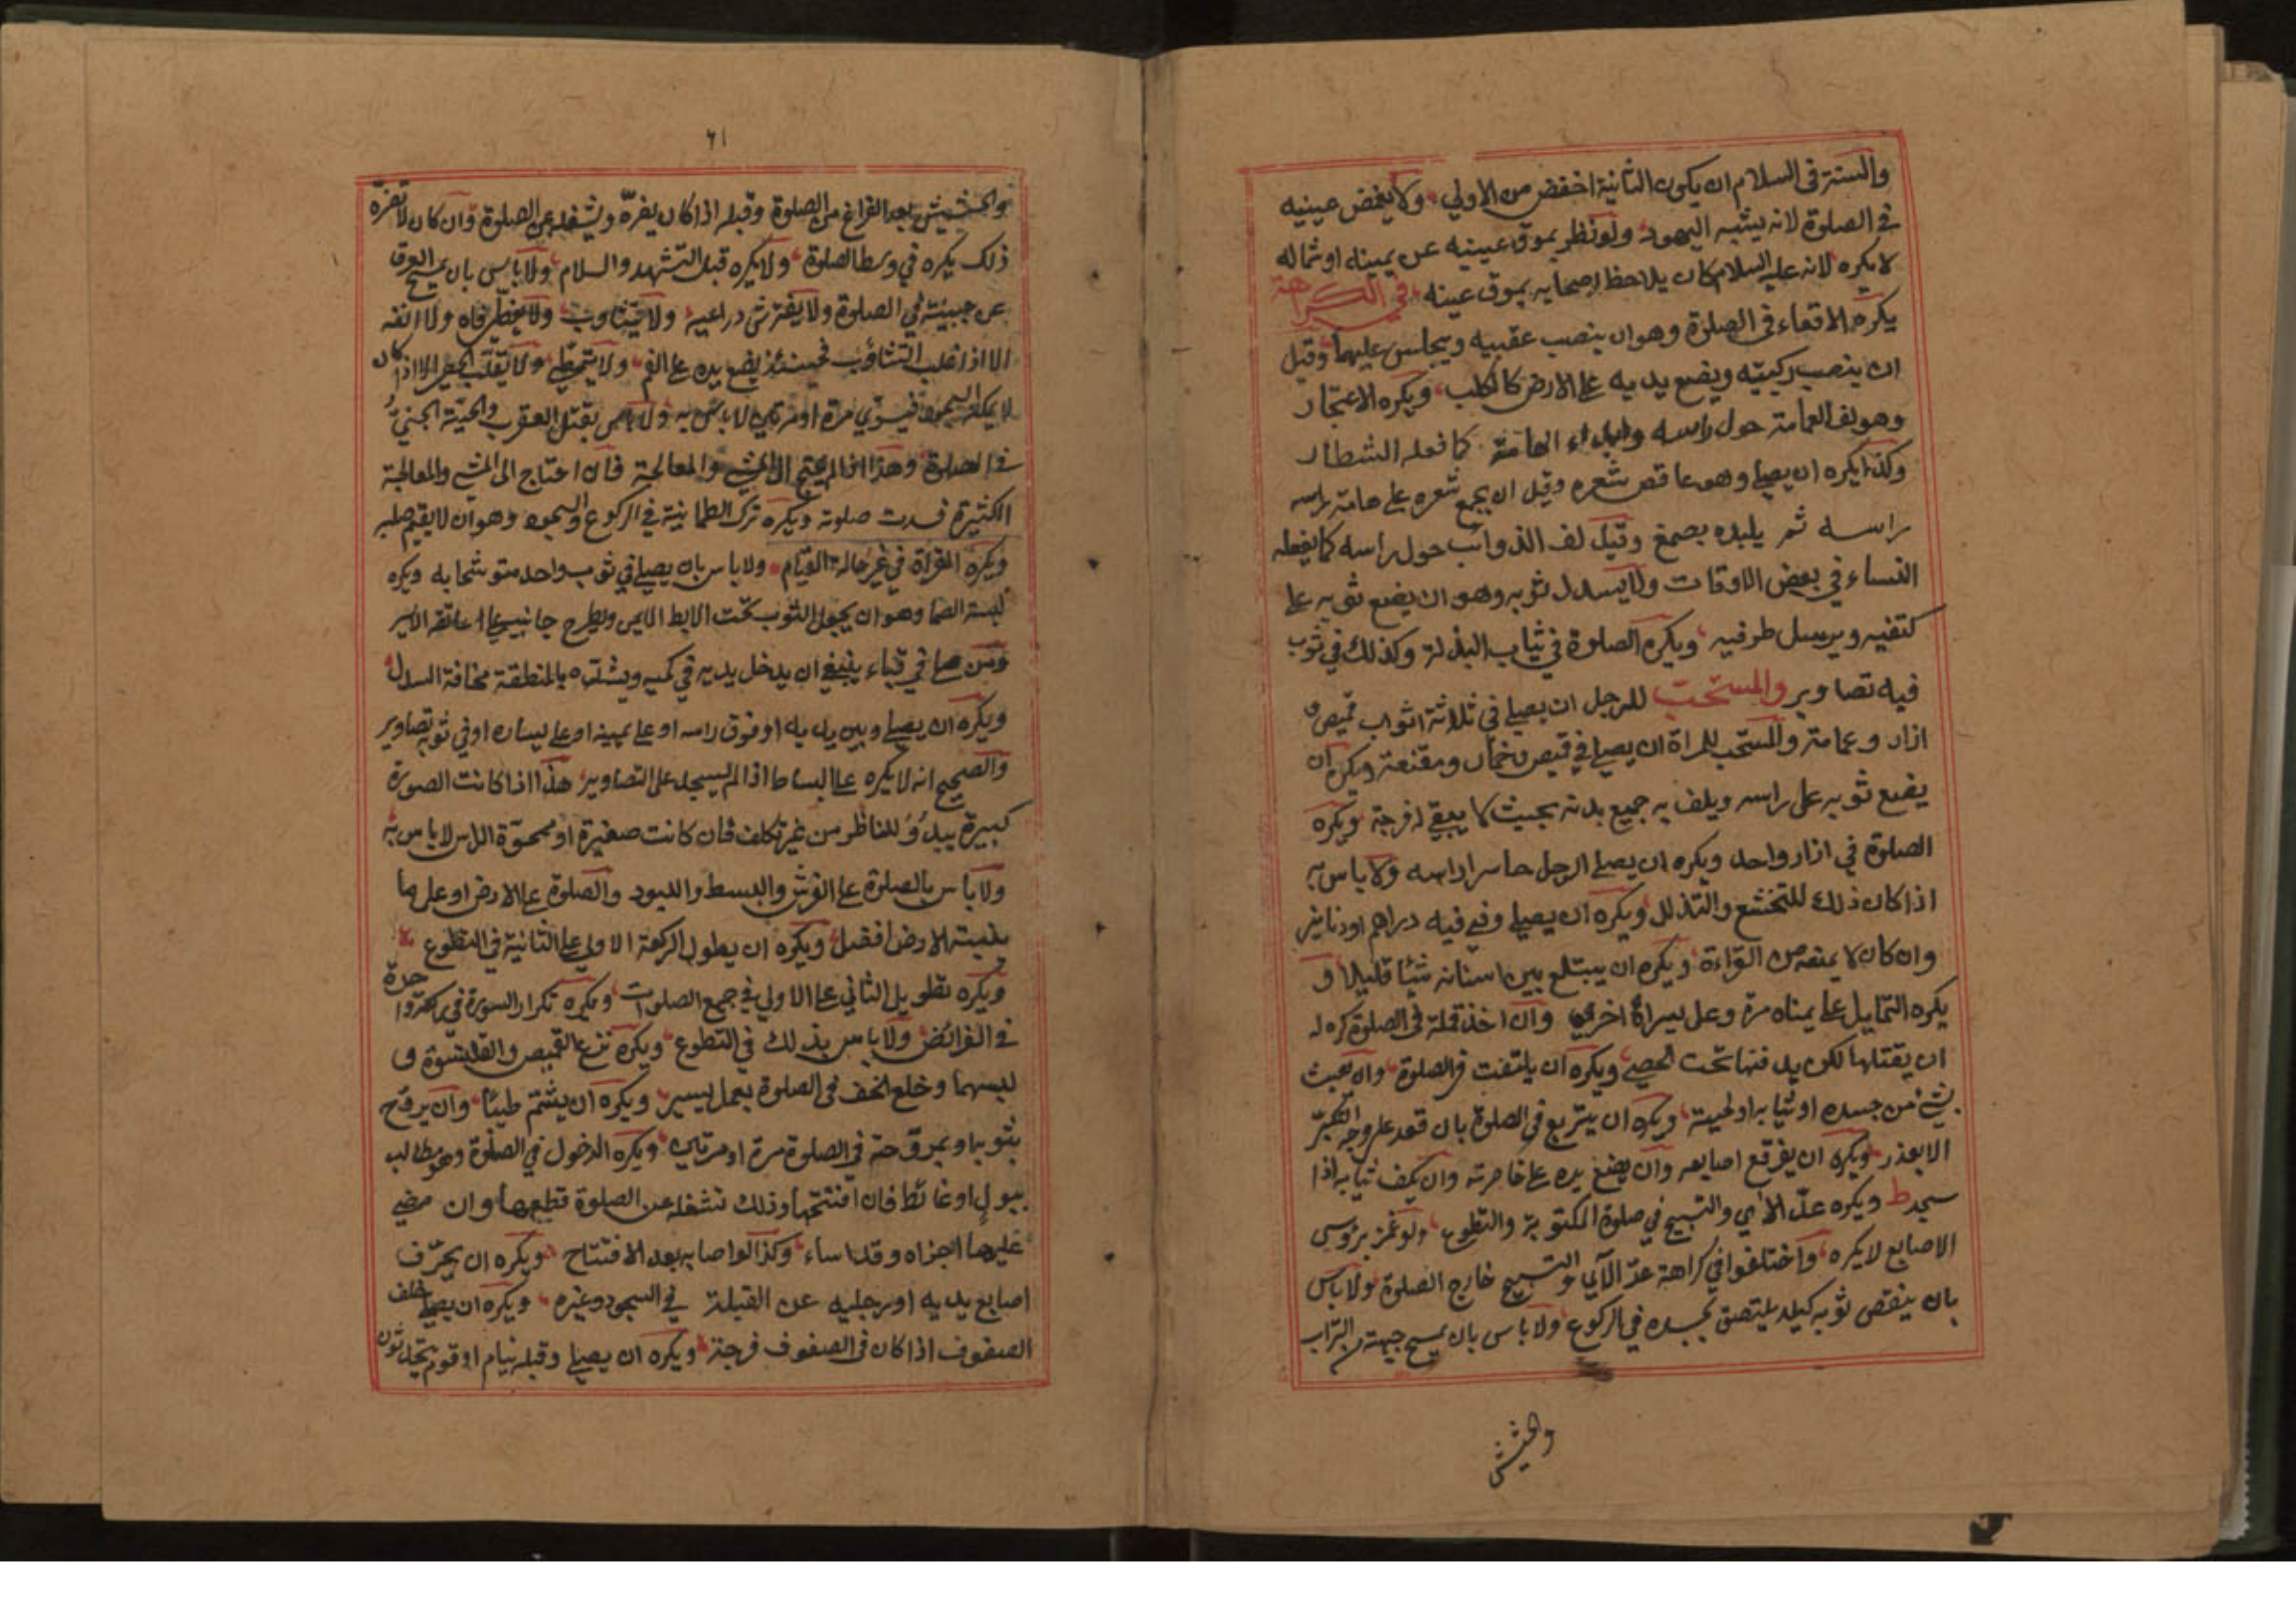 والسنة في السلام ان يكون الثانية اخفض من الاولي ولا يغمض عينيه
في الصلوة لانه يشبه اليهود ولو نظر بموق عينيه عن يمينه او شماله
لا يكره لانه عليه السلام كان يلاحظ اصحابه بموق عينه في الكراهة
يكره الاقعاء في الصلوة وهو ان ينصب عقبيه ويجلس عليهما وقيل
ان ينصب ركبتيه ويضع يديه علي الارض كالكلب ويكره الاعتجار
وهو يلف العمامة حول راسه الهامة كما فعله الشطار
وكذا يكره ان يصلي وهو عاقص شعره وقيل ان يجمع شعره علي هامة راسه
راسه ثم يلبده بصمغ وقيل لف الذوائب حول راسه كما يفعله
النساء في بعض الاوقات ولا يسدل ثوبه وهو ان يضع ثوبه علي
كتفيه ويرسل طرفيه ويكره الصلوة في ثياب البذلة وكذلك في ثوب
فيه تصاوير والمستحب للرجل ان يصلي في ثلاثة اثواب قميص و
ازار وعمامة والمستحب للمراة ان يصلي في قميص وخمار ومقنعة ويكره ان
يضع ثوبه على راسه ويلف به جميع بدنه بحيث لا يبقي له فرجة ويكره
الصلوة في ازار واحد ويكره ان يصلي الرجل حاسرا راسه ولا باس به
اذا كان ذلك للتخشع والتذلل ويكره ان يصلي وفي فيه دراهم او دنانير
وان كان لا يمنعه من القراءة ويكره ان يبتلع بين اسنانه شيئا قليلا و
يكره التمايل علي يمناه مرة وعلى يسراه اخري وان اخذ قملة في الصلوة كره له
ان يقتلها لكن يدفنها تحت الحصي ويكره ان يلتفت في الصلوة وان يعبث
بشئ من جسده او ثيابه او لحيته ويكره ان يتربع في الصلوة بان قعد على وجه التكبر
الا بعذر ويكره ان يفرقع اصابعه وان يضع يده علي خاصرته وان يكف ثيابه اذا
سجد ط ويكره عد الاي والتسبيح في صلوة المكتوبة والتطوع ولو غمز برؤس
الاصابع لا يكره واختلفوا في كراهة عد الآي والتسبيح خارج الصلوة ولا باس
بان ينفض ثوبه كيلا يلتصق بجسده في الركوع ولا باس بان يمسح جبهته من التراب
والحشيش
٦١
والحشيش بعد الفراغ من الصلوة وقبله اذا كان يضره ويشغله عن الصلوة وان كان لا يضره
ذلك يكره في وسط الصلوة ولا يكره قبل التشهد والسلام ولا باس بان يمسح العرق
عن جبينه في الصلوة ولا يفترش ذراعيه ولا يتثاوب ولا يغطي فاه ولا انفه
الا اذا غلب التثاؤب فحينئذ يضع يده علي الفم ولا يتمطي ولا يقلب الحصي الا اذا كان
لا يمكنه السجود فيسوي مرة او مرتين لا باس به ولا باس بقتل العقرب والحية الجني و
في الصلوة وهذا اذا لم يحتج الي المشي والمعالجة فان احتاج الى المشي والمعالجة
الكثيرة فسدت صلوته ويكره ترك الطمانية في الركوع والسجود وهو ان لا يقيم صلبه
ويكره القرأة في غير حالة القيام ولا باس بان يصلي في ثوب واحد متوشحا به ويكره
لبسة الصما وهو ان يجعل الثوب تحت الابط الايمن ويطرح جانبيه علي عاتقه الايسر
ومن صلي في قباء ينبغي ان يدخل يديه في كميه ويشده بالمنطقة مخافة السدل
ويكره ان يصلي وبين يديه او فوق راسه او علي يمينه او علي يساره او في ثوبه تصاوير
والصحيح انه لا يكره علي البساط اذا لم يسجد على التصاوير هذا اذا كانت الصورة
كبيرة يبدو للناظر من غير تكلف فان كانت صغيرة او ممحوة الراس لا باس به
ولا باس بالصلوة علي الفرش والبسط واللبود والصلوة علي الارض او على ما
ينبته الارض افضل ويكره ان يطول الركعة الاولي علي الثانية في التطوع
ويكره تطويل الثاني علي الاولي في جميع الصلوات ويكره تكرار السورة في ركعة واحدة
في الفرائض ولا باس بذلك في التطوع ويكره نزع القميص والقلنسوة و
لبسهما وخلع الخف في الصلوة بعمل يسير ويكره ان يشتم طيبا وان يروح
بثوبه او بمروحة في الصلوة مرة او مرتين ويكره الدخول في الصلوة وهو مطالب
ببول او غائط فان افتتحها وذلك تشغله عن الصلوة قطعها وان مضي
عليها اجزاه وقد اساء وكذا لو اصابه بعد الافتتاح ويكره ان يحرف
اصابع يديه او رجليه عن القبلة في السجود وغيره ويكره ان يصلي خلف
الصفوف اذا كان في الصفوف فرجة ويكره ان يصلي وقبله نيام او قوم يتحدثون